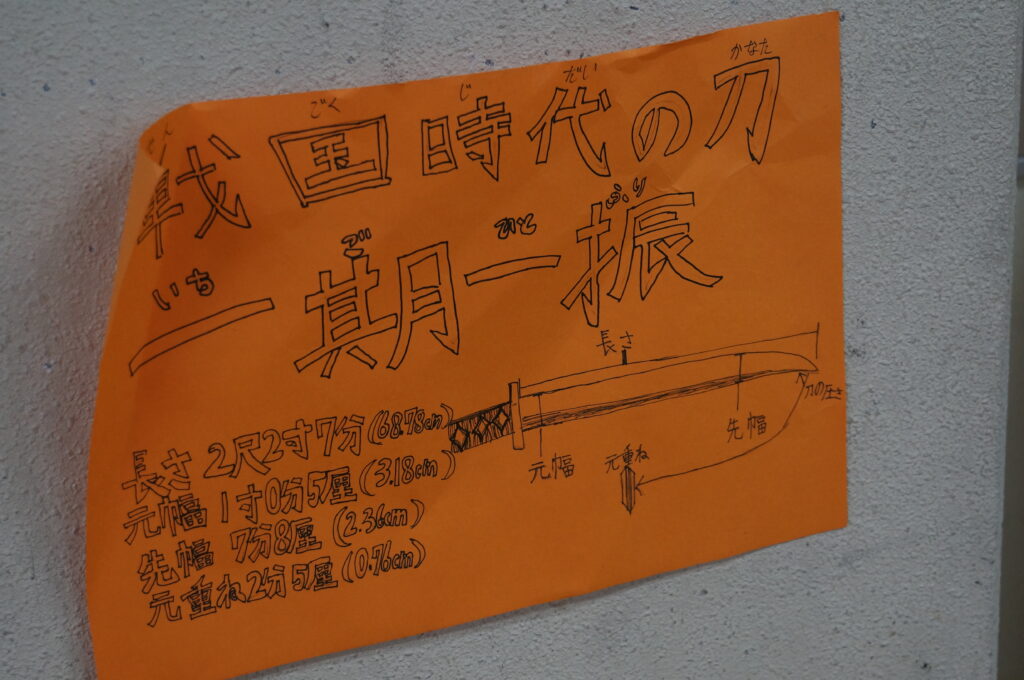 せん ごく じ だい かなた
戦国時代の刀
いち ご ひと ふり
一期一振
長さ
刀の圧さ
先幅
元幅
元重ね
長さ 2尺2寸7分(68.78cm)
元幅 1寸0分5厘(3.18cm)
先幅 7分8厘(2.36cm)
元重ね2分5厘(0.76cm)